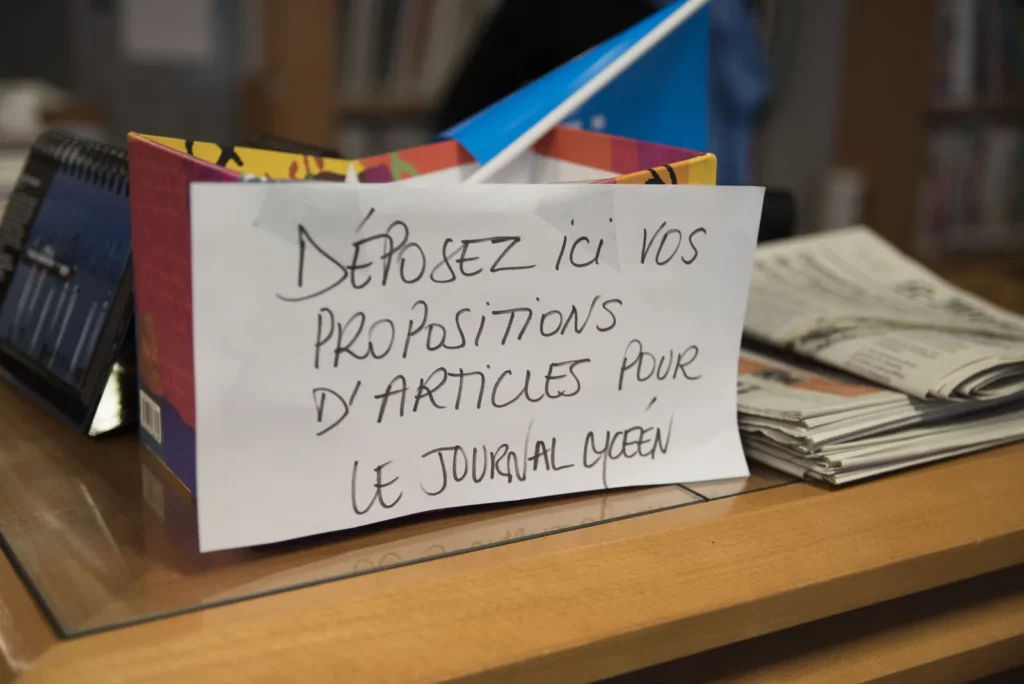 DÉPOSEZ ici VOS
PROPOSITIONS
D'ARTICLES POUR
LE JOURNAL LYCÉEN